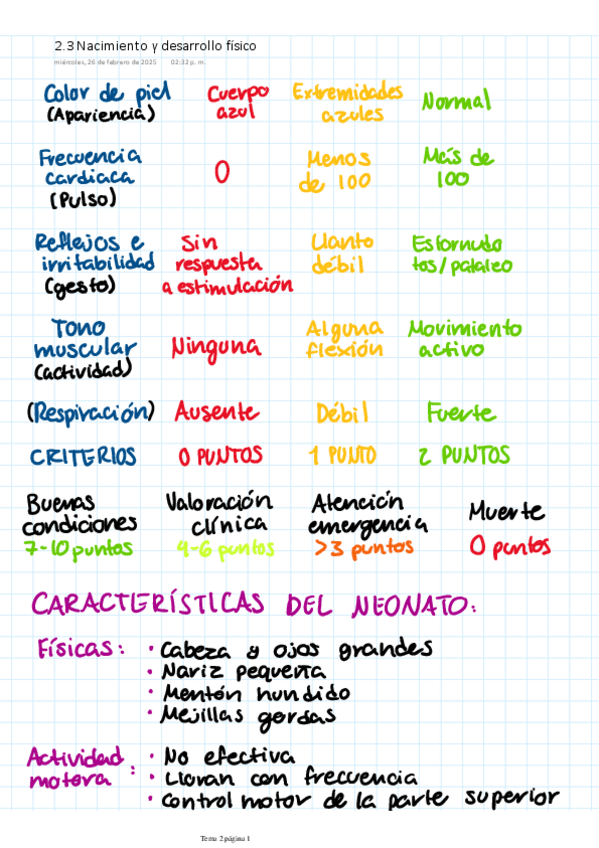 2.3 Nacimiento y desarrollo físico
miércoles, 26 de febrero de 2025 02:32 p. m.
Color de piel Cuerpo Extremidades Normal
(Apariencia) azul azules
Frecuencia Menos Más de
cardiaca 0 de 100 100
(Pulso)
Reflejos e Sin Llanto Estornudo
irritabilidad respuesta débil tos/pataleo
(gesto) a estimulación
Tono Alguna Movimiento
muscular Ninguna flexión activo
(actividad)
(Respiración) Ausente Débil Fuerte
CRITERIOS 0 PUNTOS 1 PUNTO 2 PUNTOS
Buenas Valoración Atención Muerte
condiciones clínica emergencia
7-10 puntos 4-6 puntos >3 puntos 0 puntos
CARACTERÍSTICAS DEL NEONATO:
Físicas: · Cabeza y ojos grandes
· Nariz pequeña
· Mentón hundido
· Mejillas gordas
Actividad · No efectiva
motora : · Lloran con frecuencia
· Control motor de la parte superior
Tema 2 página 1